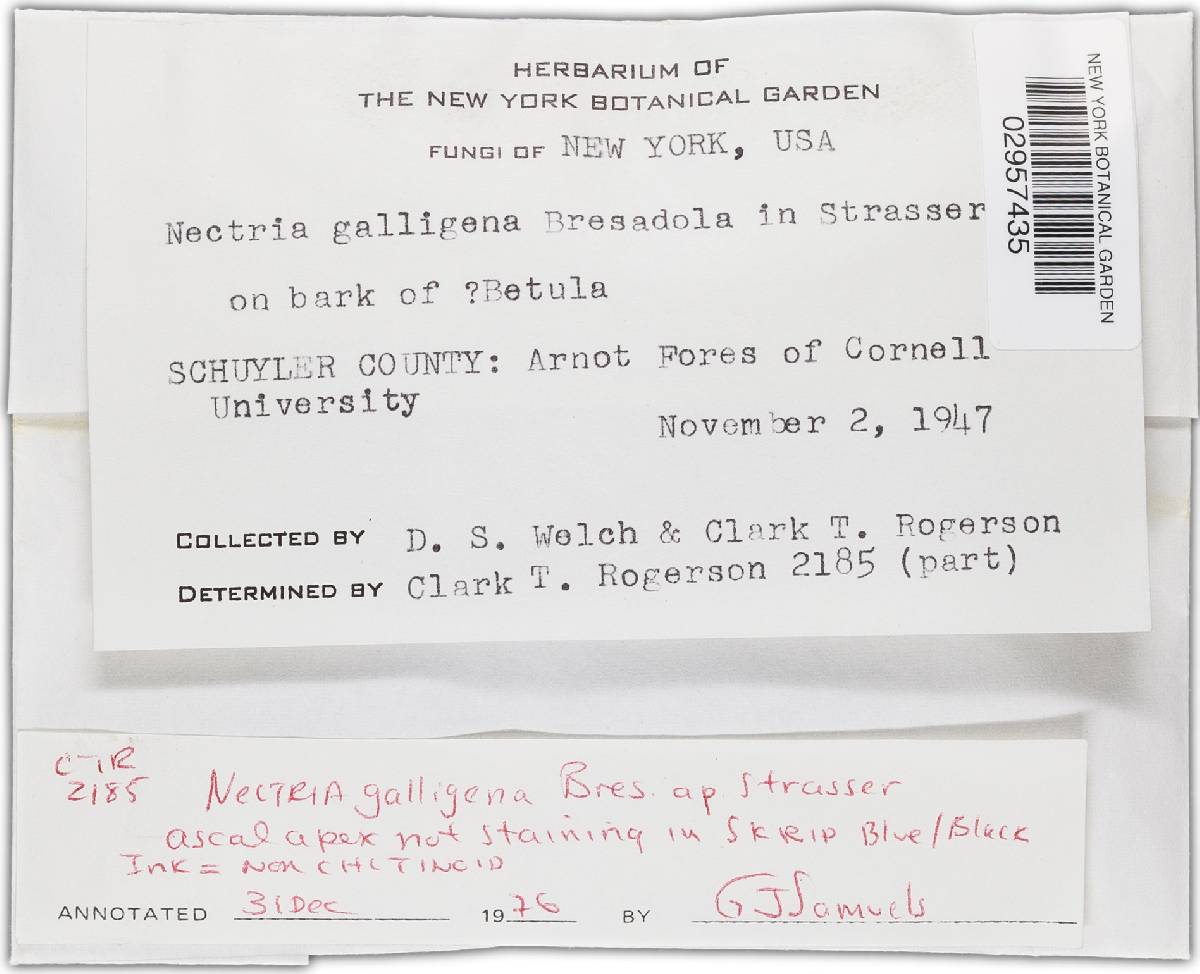 HERBARIUM OF
THE NEW YORK BOTANICAL GARDEN
FUNGI OF NEW YORK, USA
NEW YORK BOTANICAL GARDEN
02957435
Nectria galligena Bresadola in Strasser
on bark of ?Betula
SCHUYLER COUNTY: Arnot Fores of Cornell
University
November 2, 1947
COLLECTED BY D. S. Welch & Clark T. Rogerson
DETERMINED BY Clark T. Rogerson 2185 (part)
CTR
2185
NECTRIA galligena Bres. ap. Strasser
ascal apex not staining in SKRIP Blue/Black
Ink = NON CHITINOID
ANNOTATED 31 Dec 1976 BY GJSamuels